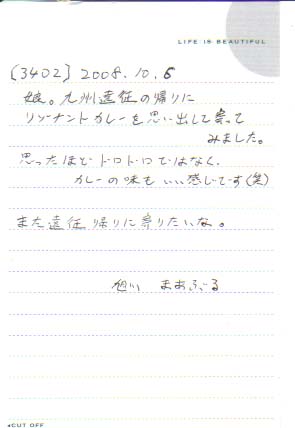 LIFE IS BEAUTIFUL
[3402] 2008.10.5
娘。九州遠征の帰りに
リゾナントカレーを思い出して寄って
みました。
思ったほどドロドロではなく、
カレーの味もいい感じです(笑)
また遠征帰りに寄りたいな。
旭川 まあぶる
◂CUT OFF